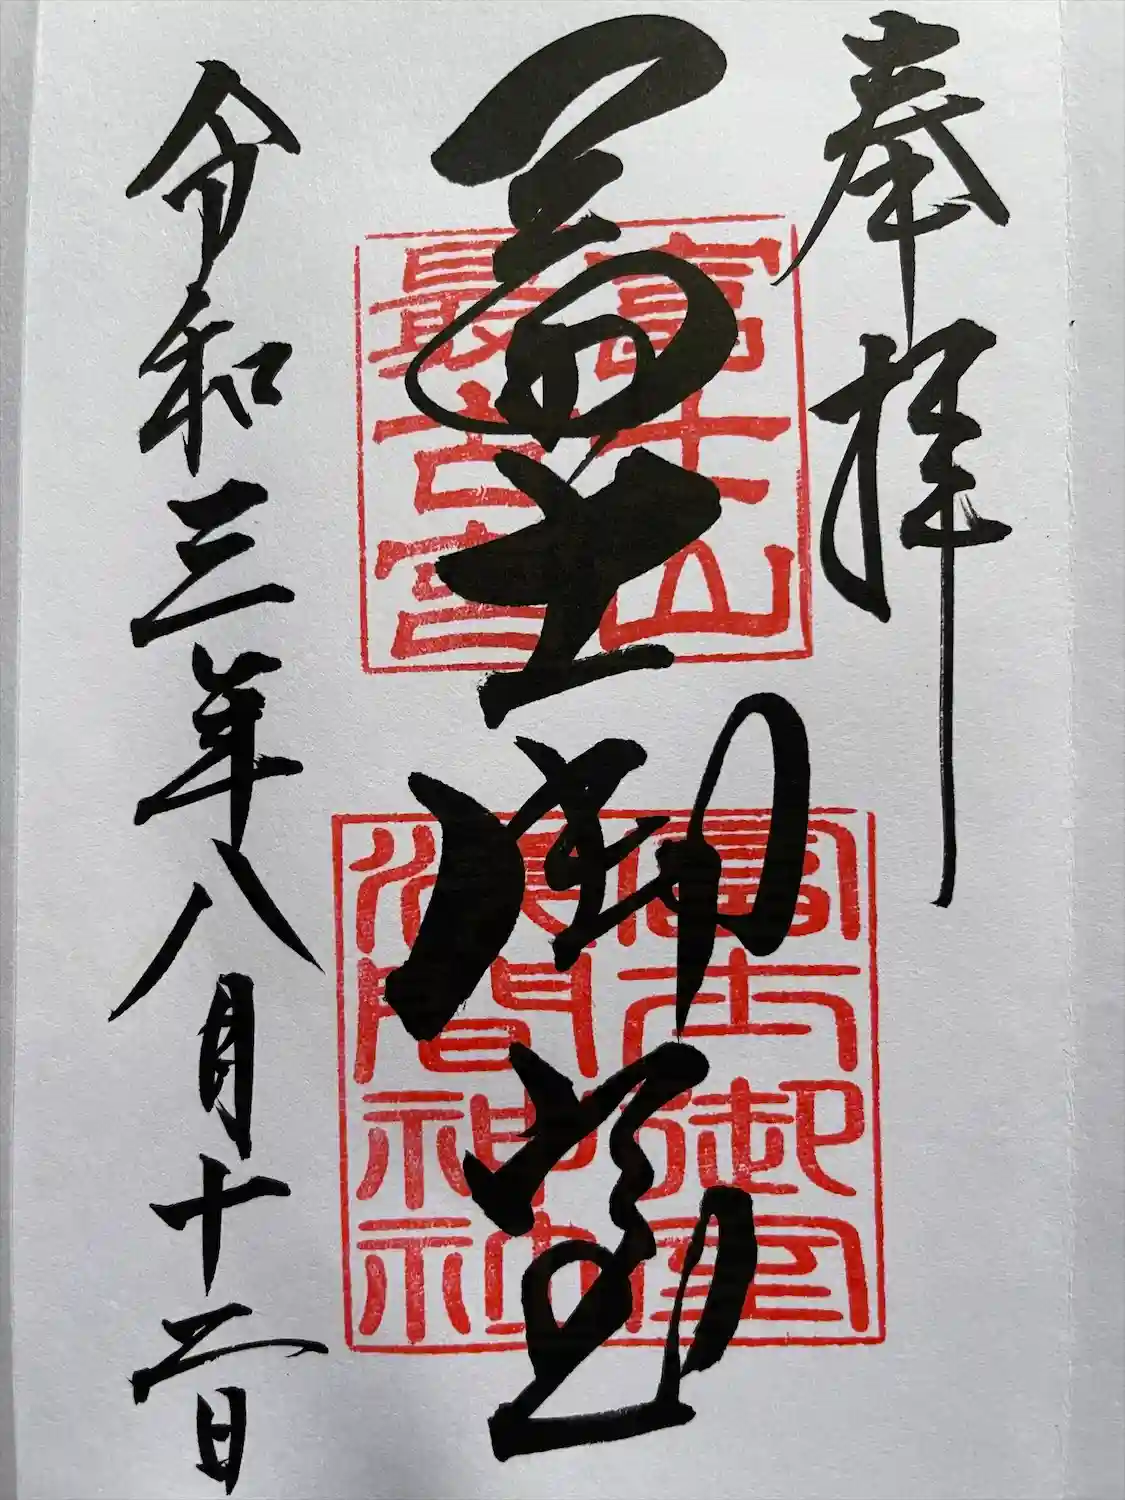 奉拝
冨士御室
冨士山
最古宮
冨士御室
浅間神社
令和三年八月十二日